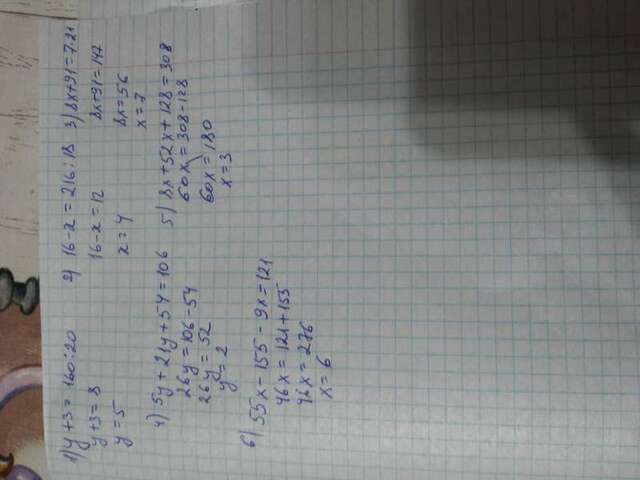 1) y+3 = 160:20
y+3 = 8
y = 5
2) 16-x = 216:18
16-x = 12
x = 4
3) 8x+91 = 7·21
8x+91 = 147
8x = 56
x = 7
4) 5y + 21y + 54 = 106
26y = 106 - 54
26y = 52
y = 2
5) 8x + 52x + 128 = 308
60x = 308 - 128
60x = 180
x = 3
6) 55x - 155 - 9x = 121
46x = 121 + 155
46x = 276
x = 6